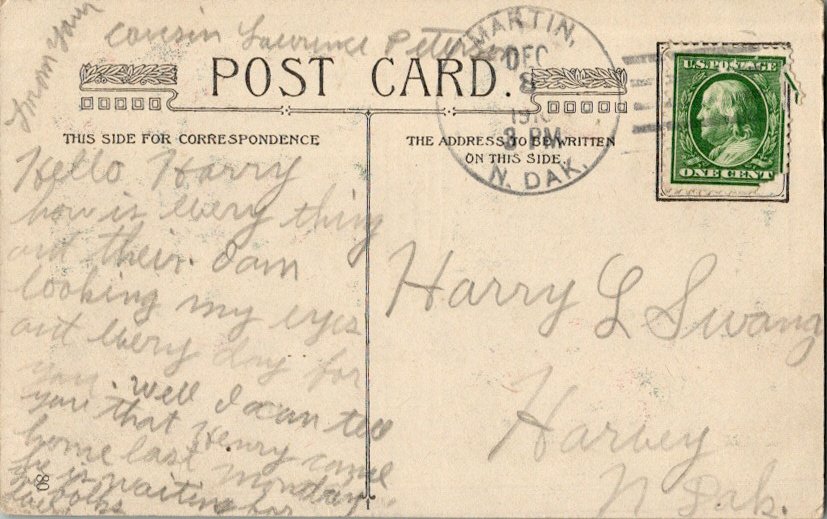 From your
cousin Lawrence Peterson
POST CARD.
THIS SIDE FOR CORRESPONDENCE
Hello Harry
how is every thing
out their. I am
looking my eyes
out every day for
you. well I can tell
you that Henry came
home last monday
he is waiting for
folks
80
MARTIN,
DEC
8
3 PM
N. DAK.
U.S. POSTAGE
ONE CENT
THE ADDRESS TO BE WRITTEN
ON THIS SIDE.
Harry L Swang
Harvey
N Dak.